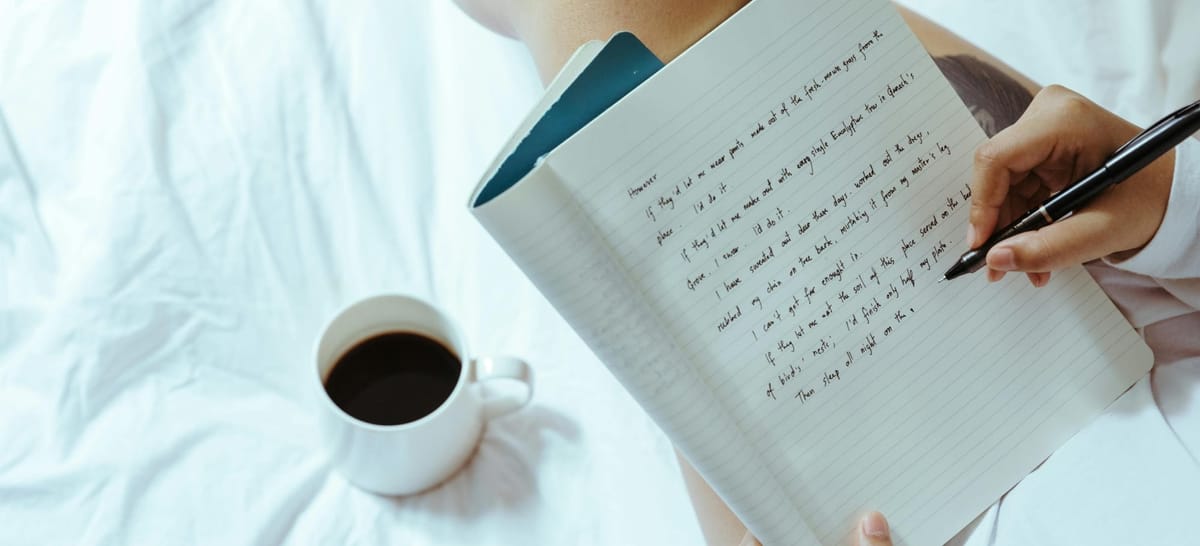 However
If they'd let me wear pants made out of the fresh-mowed grass from the
place. I'd do it.
If they'd let me make out with every single Eucalyptus tree in
Grove, I swear. I'd do it.
I have sweated out dear these days. worked out the dregs,
rubbed my chin on tree bark, mistaking it from my master's leg
I can't get far enough in.
If they let me eat the soil of this place served on the bed
of birds' nests, I'd finish only half my plate.
Then sleep all night on the